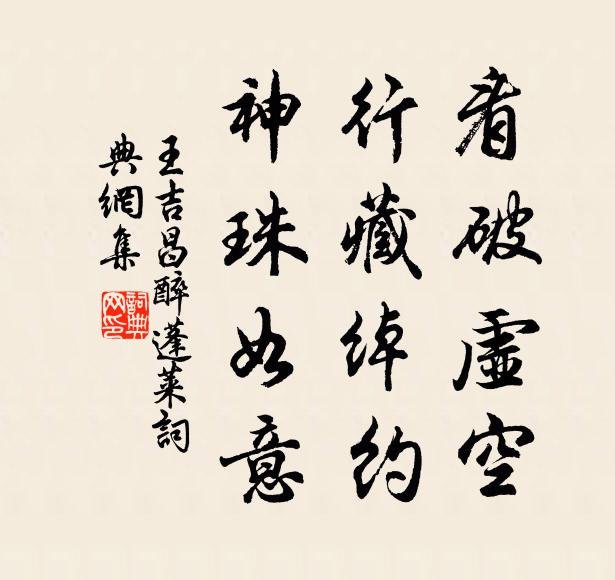 看破虛空
行藏綽約
神珠如意
王吉昌醉蓬萊詞
典網集
詞典网印